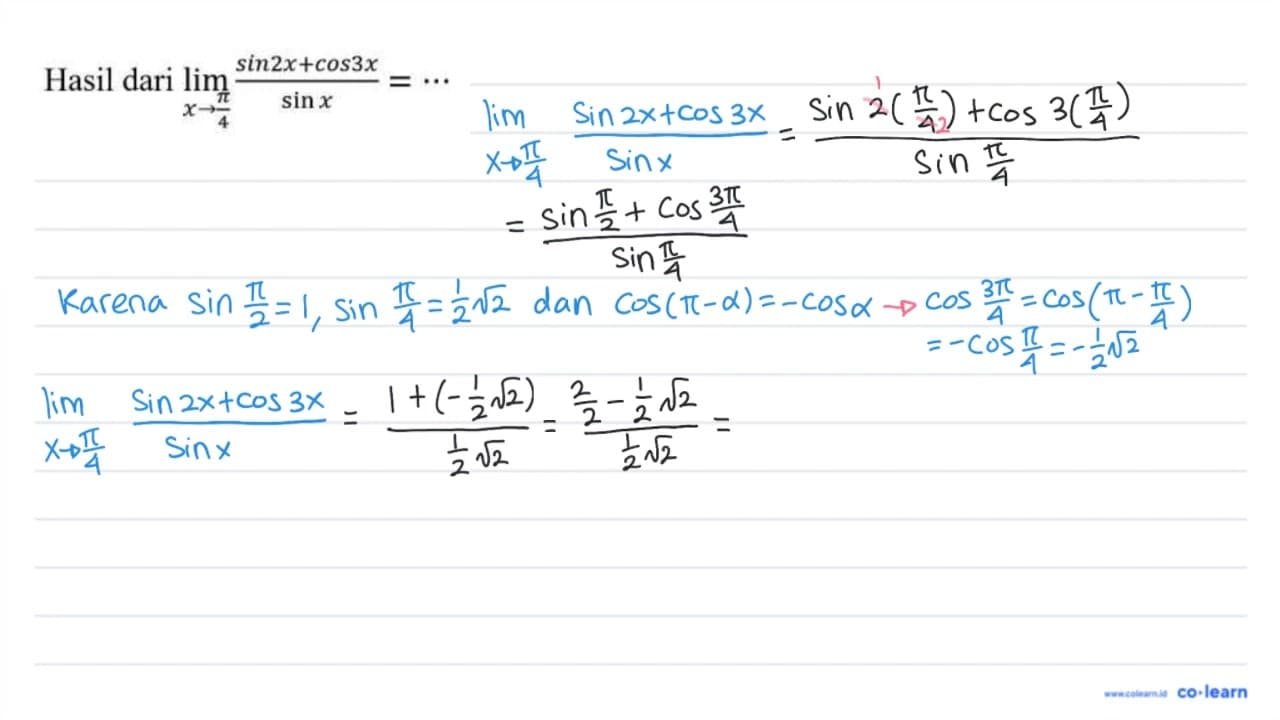 Hasil dari lim x→π/4 (sin2x+cos3x)/(sin x) = ...
lim x→π/4 (Sin 2x+cos 3x)/(Sin x) = (Sin 2(π/4) + cos 3(π/4))/(Sin π/4)
1
2
= (Sin π/2 + cos 3π/4)/(Sin π/4)
Karena sin π/2 = 1, sin π/4 = 1/2 √2 dan cos(π-α) = -cos α → cos 3π/4 = cos(π - π/4)
= -cos π/4 = -1/2 √2
lim x→π/4 (Sin 2x+cos 3x)/(Sin x) = (1 + (-1/2 √2))/(1/2 √2) = (2/2 - 1/2 √2)/(1/2 √2) =
www.colearn.id co·learn